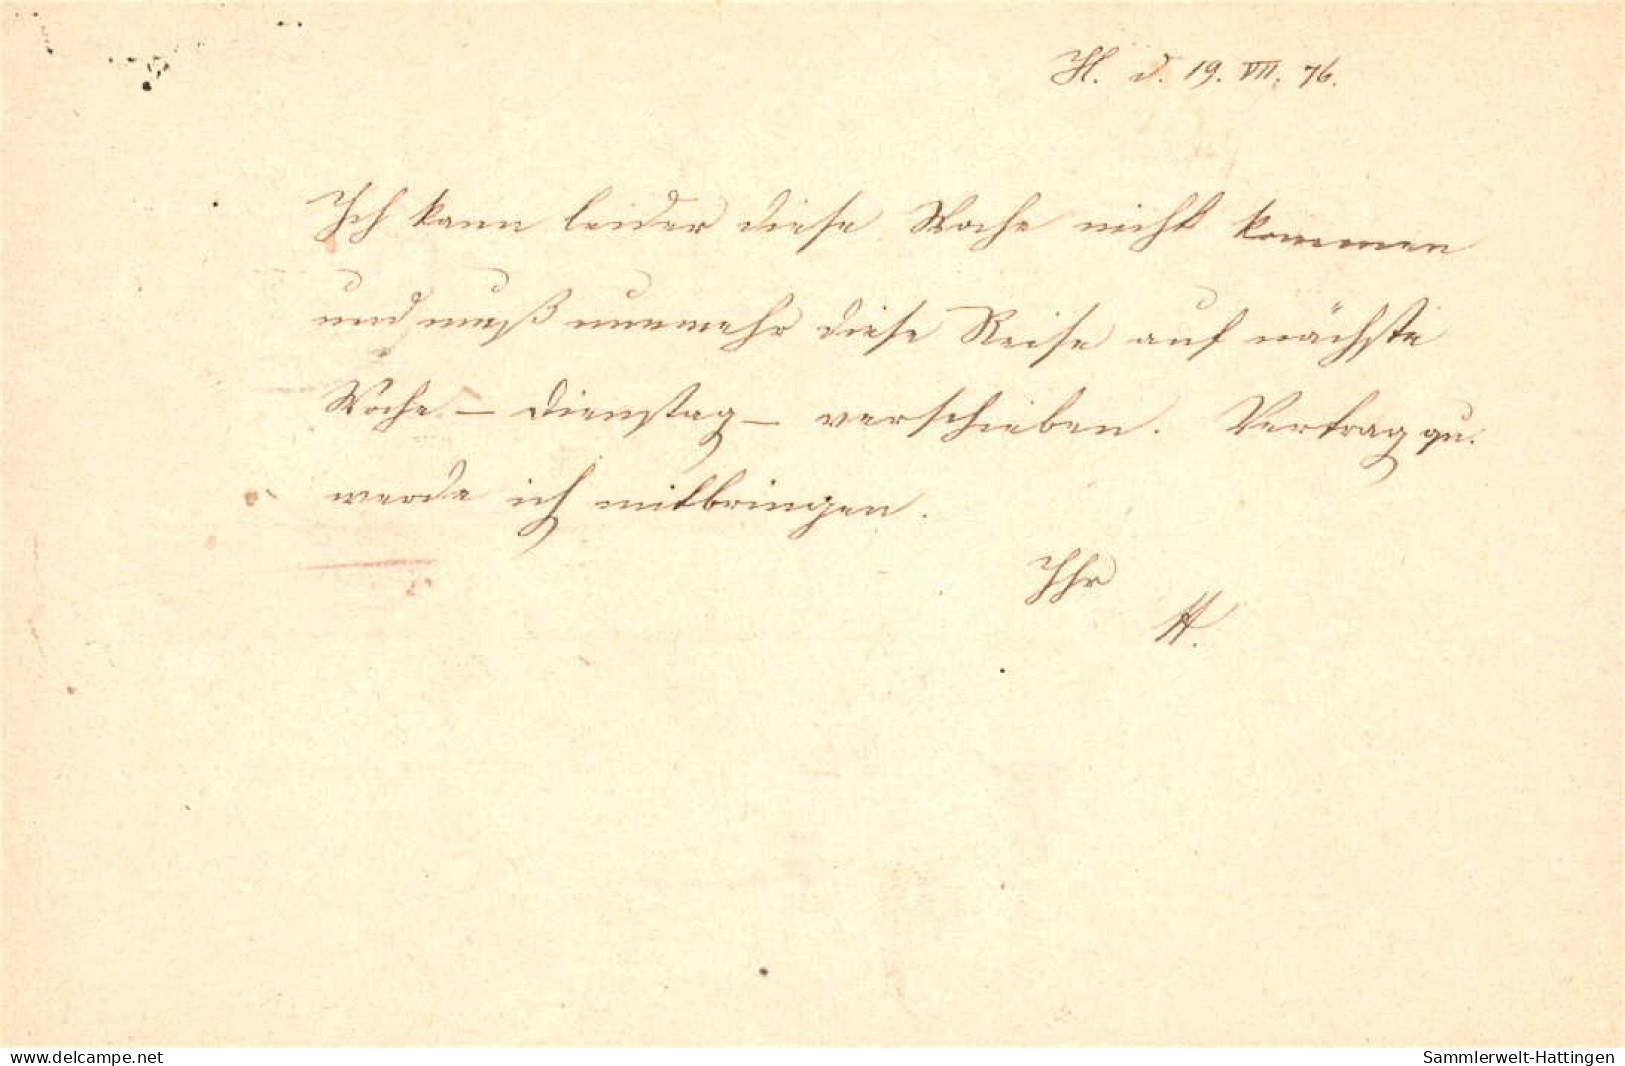 H. d. 19. VII. 76.
Ich kann leider diese Woche nicht kommen
und muß nunmehr diese Reise auf nächste
Woche – Dienstag – verschieben. Vertrag qu.
werde ich mitbringen.
Ihr
H.
www.delcampe.net
Sammlerwelt-Hattingen